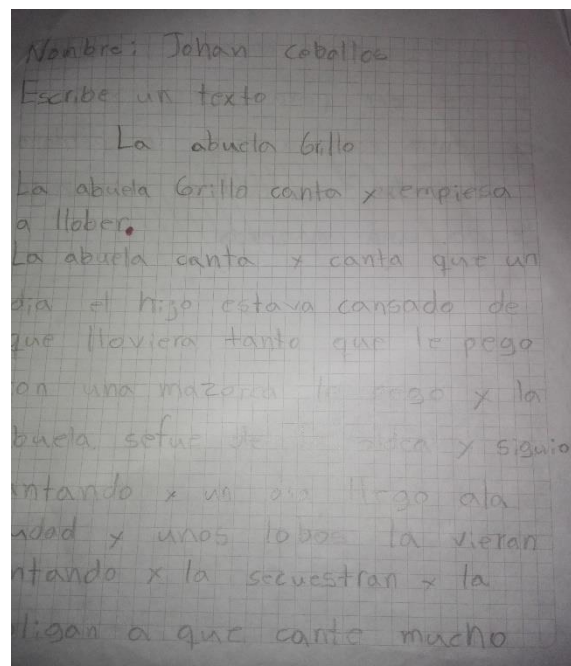 Nombre: Johan ceballos
Escribe un texto
La abuela Grillo
La abuela Grillo canta y empiesa
a llober.
La abuela canta y canta que un
dia el hijo estava cansado de
que lloviera tanto que le pego
on una mazorca le pego y la
buela sefue de y siguio
ntando y un dia llego ala
udad y unos lobos la vieran
ntando y la secuestran y la
ligan a que cante mucho